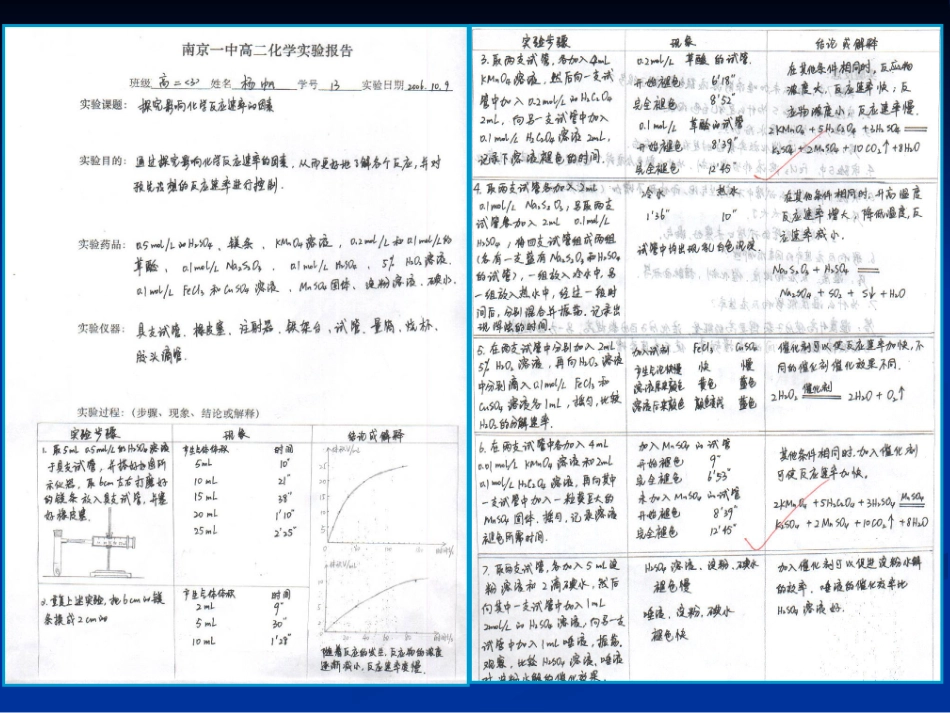 南京一中高二化学实验报告
班级 高二<3> 姓名 杨帆 学号 13 实验日期 2006.10.9
实验课题： 探究影响化学反应速率的因素
实验目的： 通过探究影响化学反应速率的因素，从而更好地了解各个反应，并对
反应速率进行控制.
实验药品： 0.5mol/L的H2SO4、镁条、KMnO4溶液，0.2mol/L和0.1mol/L的
草酸，0.1mol/L Na2S2O3，0.1mol/L H2SO4，5% H2O2溶液.
0.1mol/L FeCl3和CuSO4溶液，MnSO4固体、淀粉溶液、碘水.
实验仪器： 具支试管、橡皮塞、注射器、铁架台、试管、量筒、烧杯、
胶头滴管.
实验过程：（步骤、现象、结论或解释）
实验步骤 现象 结论或解释
1. 取5mL 0.5mol/L的H2SO4溶液
于具支试管，并搭好如图所
示仪器，取6cm左右打磨好
的镁条放入具支试管，并塞
好橡皮塞.
产生气体体积 时间
5mL 10"
10mL 21"
15mL 38"
20mL 1'10"
25mL 2'25"
2. 重复上述实验，把6cm的镁
条换成2cm的
产生气体体积 时间
2mL 9"
5mL 30"
10mL 1'28"
随着反应的发生，反应物的浓度
逐渐减小，反应速率变慢.
实验步骤 现象 结论或解释
3. 取两支试管，各加入4mL
KMnO4溶液，然后向一支试
管中加入0.2mol/L的H2C2O4
2mL，向另一支试管中加入
0.1mol/L H2C2O4溶液2mL，
记录下溶液褪色的时间.
0.2mol/L 草酸的试管
开始褪色 6'18"
完全褪色 8'52"
0.1mol/L 草酸的试管
开始褪色 8'39"
完全褪色 12'45"
在其他条件相同时，反应物
浓度大，反应速率快；反
应物浓度小，反应速率慢.
2KMnO4+5H2C2O4+3H2SO4 ══
K2SO4+2MnSO4+10CO2↑+8H2O
4. 取两支试管各加入2mL
0.1mol/L Na2S2O3，另取两支
试管各加入2mL 0.1mol/L
H2SO4，将四支试管组成两组
(各有一支盛有Na2S2O3和H2SO4
的试管)，一组放入冷水中，另
一组放入热水中，经过一段时
间后，分别混合并振荡，记录出
现浑浊的时间.
冷水 热水
1'36" 10"
试管中均出现乳白色浑浊.
在其他条件相同时，升高温度
反应速率增大，降低温度，反
应速率减小.
Na2S2O3+H2SO4 ══
Na2SO4+SO2+S↓+H2O
5. 在两支试管中分别加入2mL
5% H2O2溶液，再向H2O2溶液
中分别滴入0.1mol/L FeCl3和
CuSO4溶液各1mL，摇匀，比较
H2O2的分解速率.
加入试剂 FeCl3 CuSO4
产生气泡快慢 快 慢
溶液原来颜色 黄色 蓝色
溶液后来颜色 蓝色
催化剂可以使反应速率加快，不
同的催化剂催化效果不同.
2H2O2 催化剂══ 2H2O+O2↑
6. 在两支试管中各加入4mL
0.01mol/L KMnO4溶液和2mL
0.1mol/L H2C2O4溶液，再向其中
一支试管中加入一粒黄豆大的
MnSO4固体，摇匀，记录溶液
褪色所需时间.
加入MnSO4的试管
开始褪色 9"
完全褪色 6'53"
未加入MnSO4的试管
开始褪色 8'39"
完全褪色 12'45"
其他条件相同时，加入催化剂
可使反应速率加快.
2KMnO4+5H2C2O4+3H2SO4 MnSO4══
K2SO4+2MnSO4+10CO2↑+8H2O
7. 取两支试管，各加入5mL淀
粉溶液和2滴碘水，然后
向其中一支试管中加入1mL
2mol/L的H2SO4溶液，向另一支
试管中加入1mL唾液，振荡，
观察，比较H2SO4溶液、唾液
对淀粉水解的催化效果.
H2SO4溶液、淀粉、碘水
褪色慢
唾液、淀粉、碘水
褪色快
加入催化剂可以促进淀粉水解
的效率，唾液的催化效率比
H2SO4溶液好.